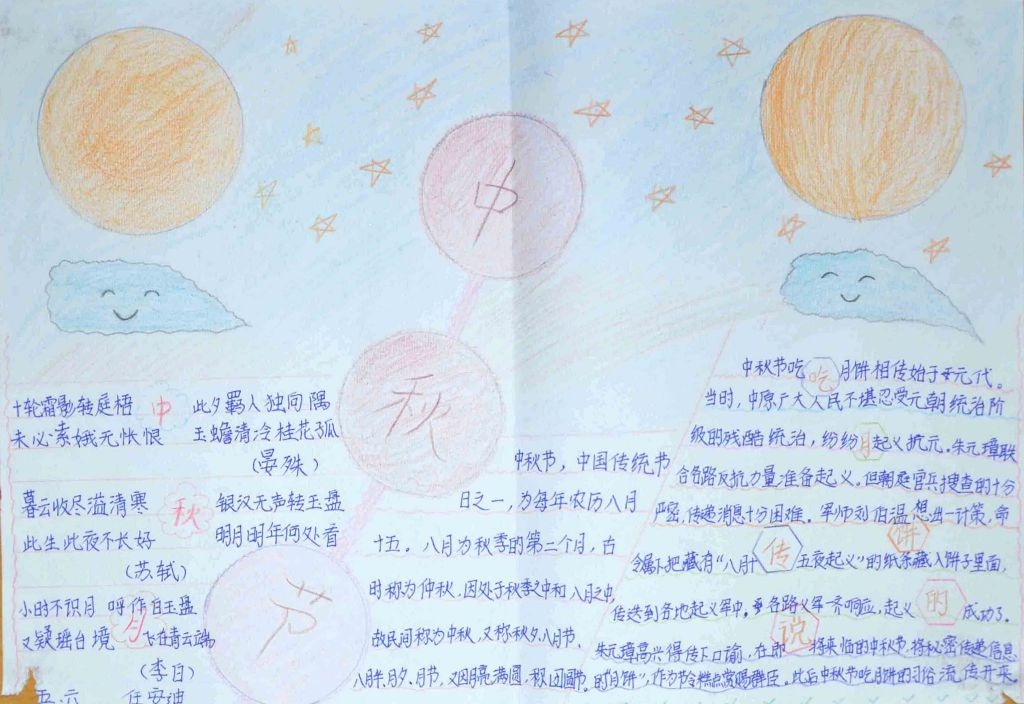 中
秋
节
十轮霜影转庭梧 中 此夕羁人独向隅
未必素娥无怅恨 玉蟾清冷桂花孤
(晏殊)
暮云收尽溢清寒 秋 银汉无声转玉盘
此生此夜不长好 明月明年何处看
(苏轼)
小时不识月 呼作白玉盘 月
又疑瑶台境 飞在青云端
(李白)
五.六 任安迪
中秋节，中国传统节
日之一，为每年农历八月
十五。八月为秋季的第二个月，古
时称为仲秋，因处于秋季之中和八月之中，
故民间称为中秋，又称秋夕、八月节、
八月半、月夕、月节，又因月亮满圆，
中秋节吃 吃 月饼相传始于元代。
当时，中原广大人民不堪忍受元朝统治阶
级的残酷统治，纷纷 月 起义抗元。朱元璋联
合各路反抗力量准备起义。但朝庭官兵搜查的十分
严密，传递消息十分困难。军师刘伯温想出一计策，命
令属下把藏有“八月十 传 五夜起义”的纸条藏入饼子里面， 饼
传送到各地起义军中，各路义军齐响应，起义 的 成功了。
朱元璋高兴得传下口谕，在即 说 将来临的中秋节，将秘密传递信息
时的“月饼”，作为节令糕点赏赐群臣。此后中秋节吃月饼的习俗流传开来。